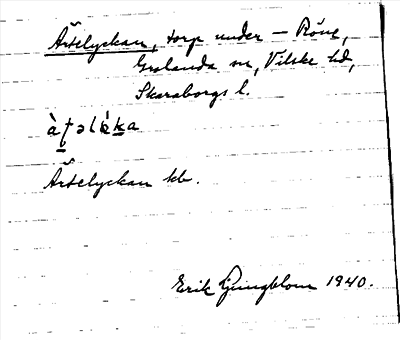 Ärtelyckan, torp under — Röne,
Grolanda sn, Vilske hd,
Skaraborgs l.
Ärtelyckan kb.
Erik Ljungblom 1940.